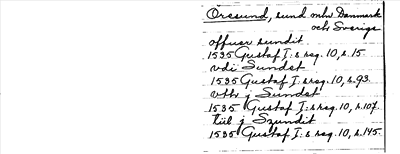 Öresund, sund mln Danmark
och Sverige
offuer sundit
1535 Gustaf I:s reg. 10, s. 15
vdi Sundet
1535 Gustaf I:s reg. 10, s. 93.
vthi j Sundet
1535 Gustaf I:s reg. 10, s. 107.
till j Szundit
1535 Gustaf I:s reg. 10, s. 145.